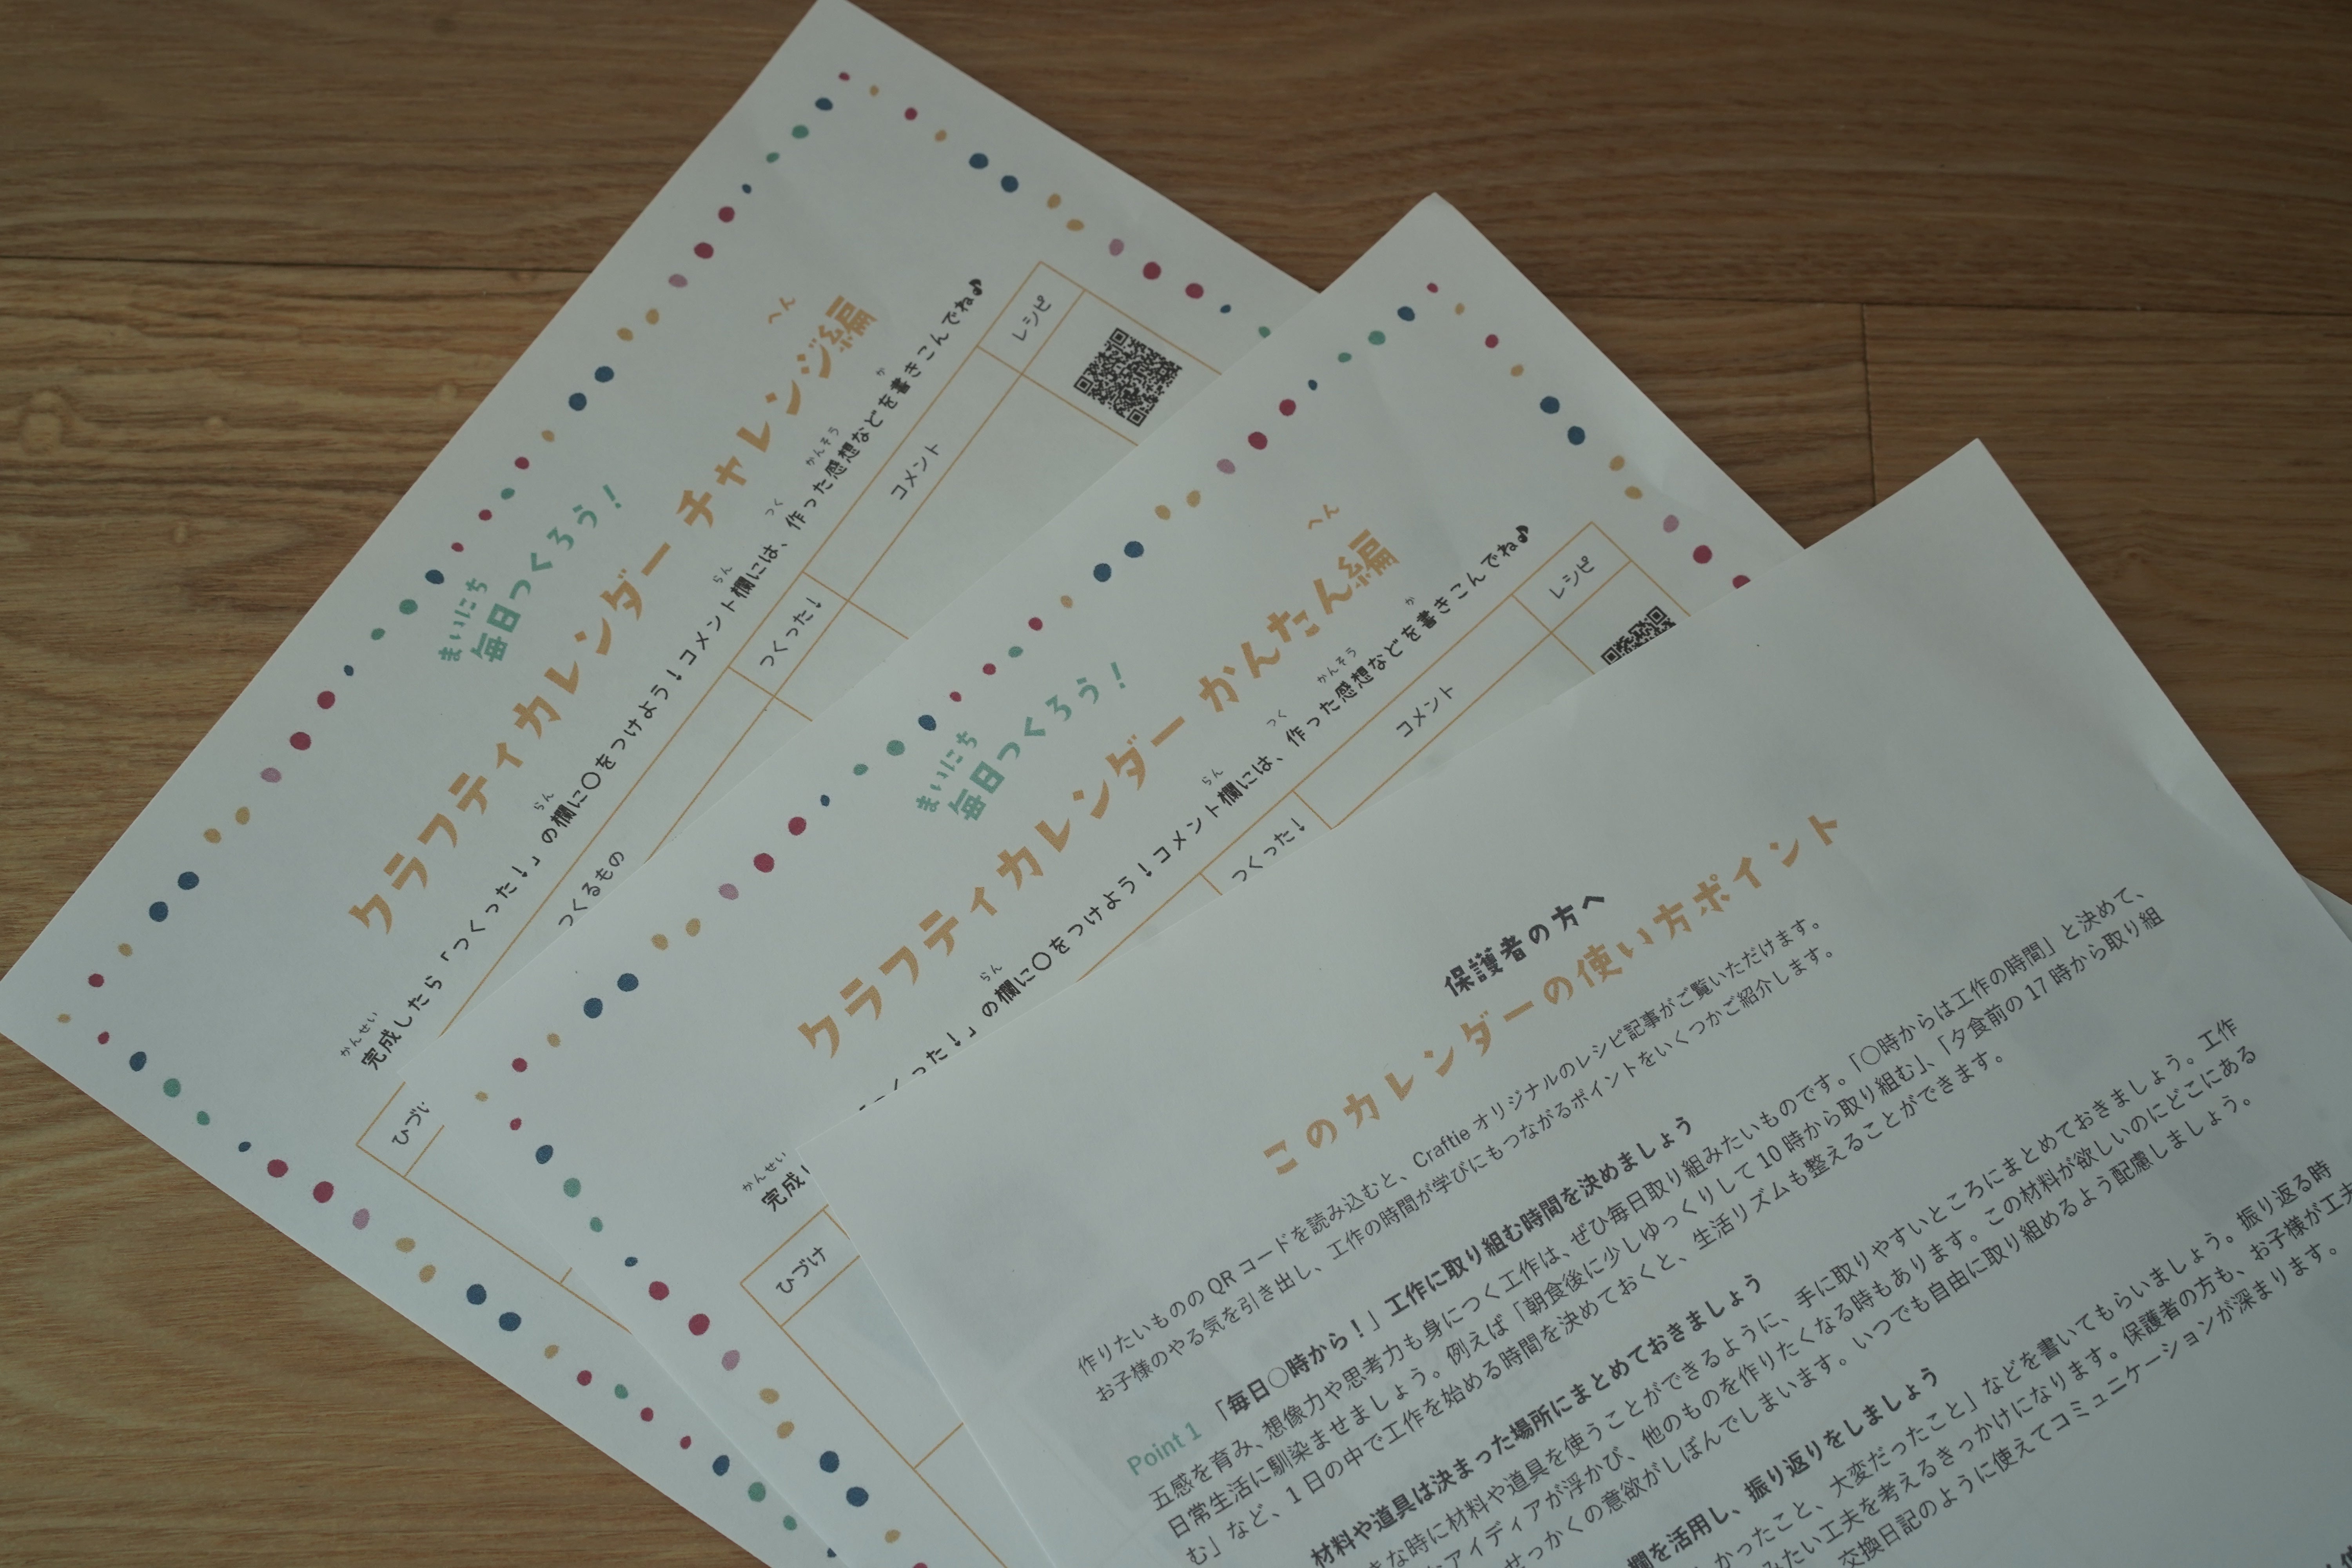 まいにち
毎日つくろう!
クラフティカレンダー チャレンジ編
へん
完成したら「つくった!」の欄に○をつけよう!コメント欄には、作った感想などを書きこんでね♪
かんせい
らん
らん
つく
かんそう
か
つくるもの
つくった!
コメント
レシピ
まいにち
毎日つくろう!
クラフティカレンダー かんたん編
へん
完成
かんせい
った!」の欄に○をつけよう!コメント欄には、作った感想などを書きこんでね♪
らん
らん
つく
かんそう
か
ひづけ
つくった!
コメント
レシピ
保護者の方へ
このカレンダーの使い方ポイント
作りたいもののQRコードを読み込むと、Craftieオリジナルのレシピ記事がご覧いただけます。
お子様のやる気を引き出し、工作の時間が学びにもつながるポイントをいくつかご紹介します。
Point 1 「毎日○時から!」工作に取り組む時間を決めましょう
五感を育み、想像力や思考力も身につく工作は、ぜひ毎日取り組みたいものです。「○時からは工作の時間」と決めて、
日常生活に馴染ませましょう。例えば「朝食後に少しゆっくりして10時から取り組む」、「夕食前の17時から取り組
む」など、1日の中で工作を始める時間を決めておくと、生活リズムも整えることができます。
材料や道具は決まった場所にまとめておきましょう
な時に材料や道具を使うことができるように、手に取りやすいところにまとめておきましょう。工作
アイディアが浮かび、他のものを作りたくなる時もあります。この材料が欲しいのにどこにある
せっかくの意欲がしぼんでしまいます。いつでも自由に取り組めるよう配慮しましょう。
欄を活用し、振り返りをしましょう
かったこと、大変だったこと」などを書いてもらいましょう。振り返る時
みたい工夫を考えるきっかけになります。保護者の方も、お子様が工夫
交換日記のように使えてコミュニケーションが深まります。